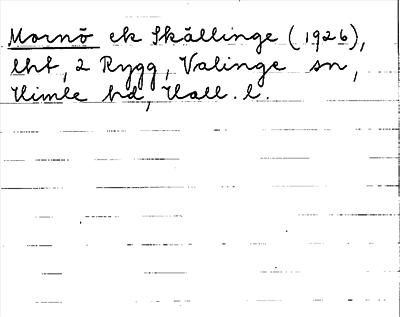 Mornö ek Skällinge (1926),
lht, 2 Rygg, Valinge sn,
Himle hd, Hall. l.